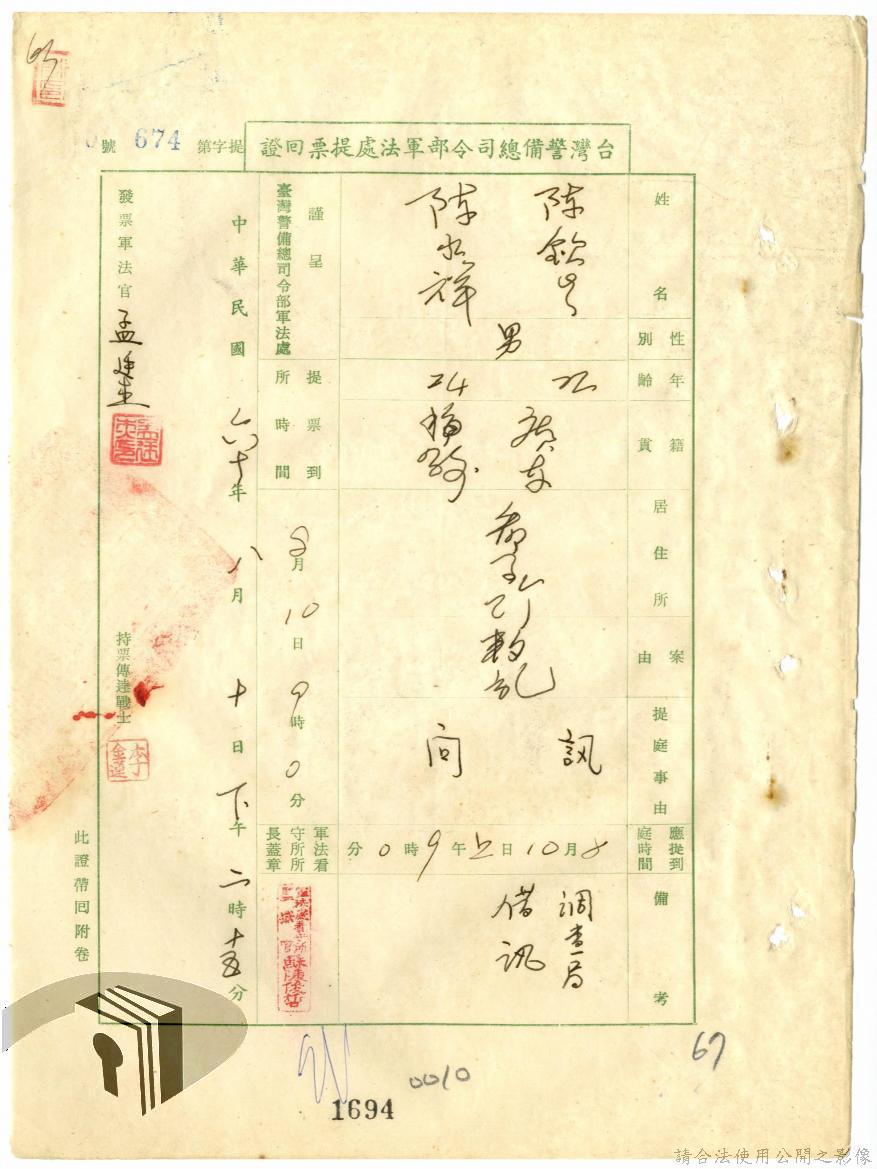 台灣警備總司令部軍法處提票回證
提字第 674 號
姓名
陳欽生
陳水祥
性別
男
年齡
22
24
籍貫
廣東
福州
居住所
案由
叛亂
提庭事由
訊問
應提到庭時間
8月10日上午9時0分
備考
調查局
借訊
謹呈
臺灣警備總司令部軍法處
提票到所時間
8月10日9時0分
軍法看守所所長蓋章
中華民國六十年八月十日下午二時十五分
發票軍法官 孟
持票傳達戰士
此證帶回附卷
67
0010
1694
請合法使用公開之影像